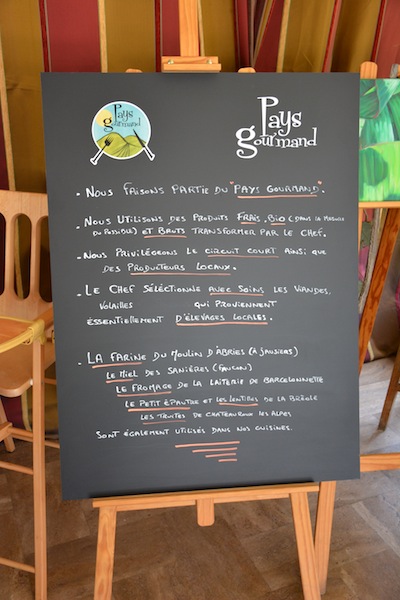 Pays
gourmand
Pays
gourmand
- NOUS FAISONS PARTIE DU "PAYS GOURMAND".
- NOUS UTILISONS DES PRODUITS FRAIS, BIO (DANS LA MESURE
DU POSSIBLE) ET BRUTS TRANSFORMER PAR LE CHEF.
- NOUS PRIVILÉGEONS LE CIRCUIT COURT AINSI QUE
DES PRODUCTEURS LOCAUX.
- LE CHEF SÉLECTIONNE AVEC SOINS LES VIANDES,
VOLAILLES QUI PROVIENNENT
ÉSSENTIELLEMENT D'ÉLEVAGES LOCALES.
- LA FARINE DU MOULIN D'ABRIES (À JAUSIERS)
LE MIEL DES SANIÈRES (FAUCON)
LE FROMAGE DE LA LAITERIE DE BARCELONNETTE
LE PETIT ÉPAUTRE ET LES LENTILLES DE LA BRÉOLE
LES TRUITES DE CHATEAUROUX LES ALPES
SONT ÉGALEMENT UTILISÉS DANS NOS CUISINES.